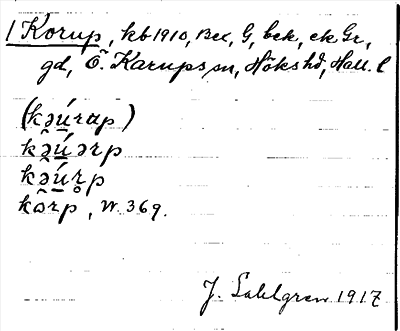 1 Korup, kb 1910, Bex, G, bek, ek Gr,
gd, Ö. Karups sn, Höks hd, Hall. l
(kəúrap)
kəúərp
kəúr̥p
kôrp, W. 369.
J. Sahlgren 1917